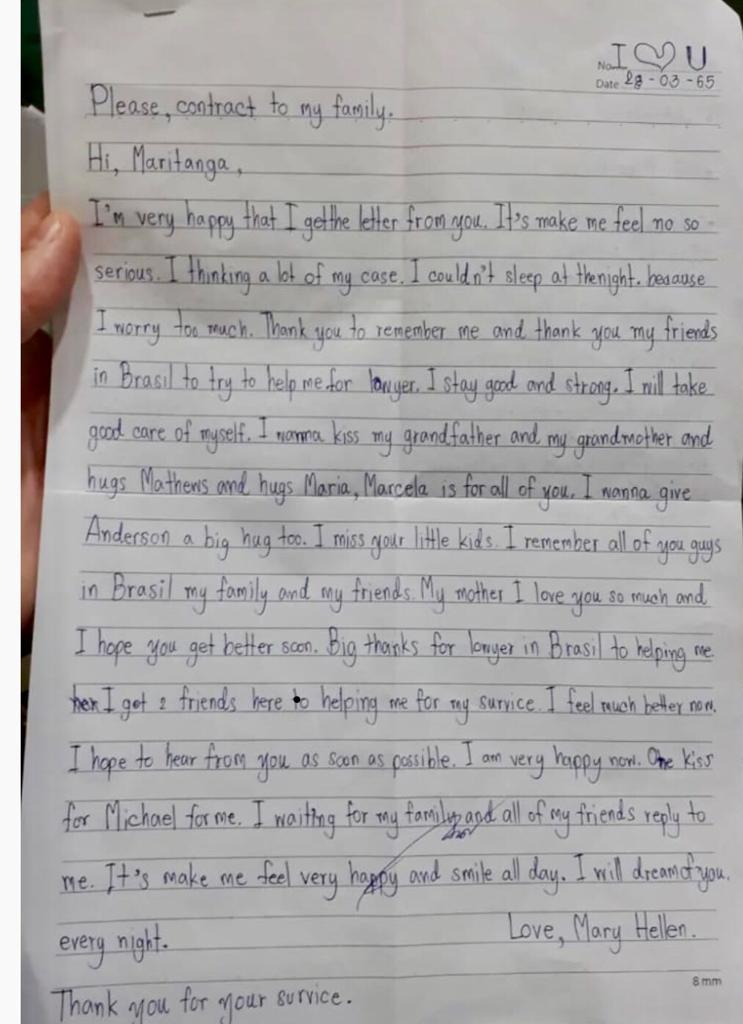 No. I ♡ U
Date 28-03-65
Please, contract to my family.
Hi, Maritanga,
I'm very happy that I getthe letter from you. It's make me feel no so
serious. I thinking a lot of my case. I couldn't sleep at thenight. because
I worry too much. Thank you to remember me and thank you my friends
in Brasil to try to help me for lowyer. I stay good and strong. I will take
good care of myself. I wanna kiss my grandfather and my grandmother and
hugs Mathews and hugs Maria, Marcela is for all of you. I wanna give
Anderson a big hug too. I miss your little kids. I remember all of you guys
in Brasil my family and my friends. My mother I love you so much and
I hope you get better soon. Big thanks for lowyer in Brasil to helping me
I got 2 friends here to helping me for my survice. I feel much better now.
I hope to hear from you as soon as possible. I am very happy now. One kiss
for Michael for me. I waiting for my family and all of my friends reply to
me. It's make me feel very happy and smile all day. I will dreamof you.
every night. Love, Mary Hellen.
8mm
Thank you for your survice.